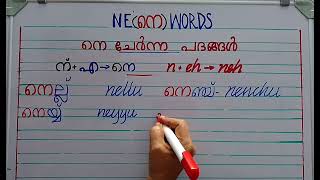 NE(നെ) WORDS
നെ ചേർന്ന പദങ്ങൾ
ന്+എ→നെ n+eh→neh
നെല്ല് nellu നെഞ്ച്- nenchu
നെയ്യ് neyyu